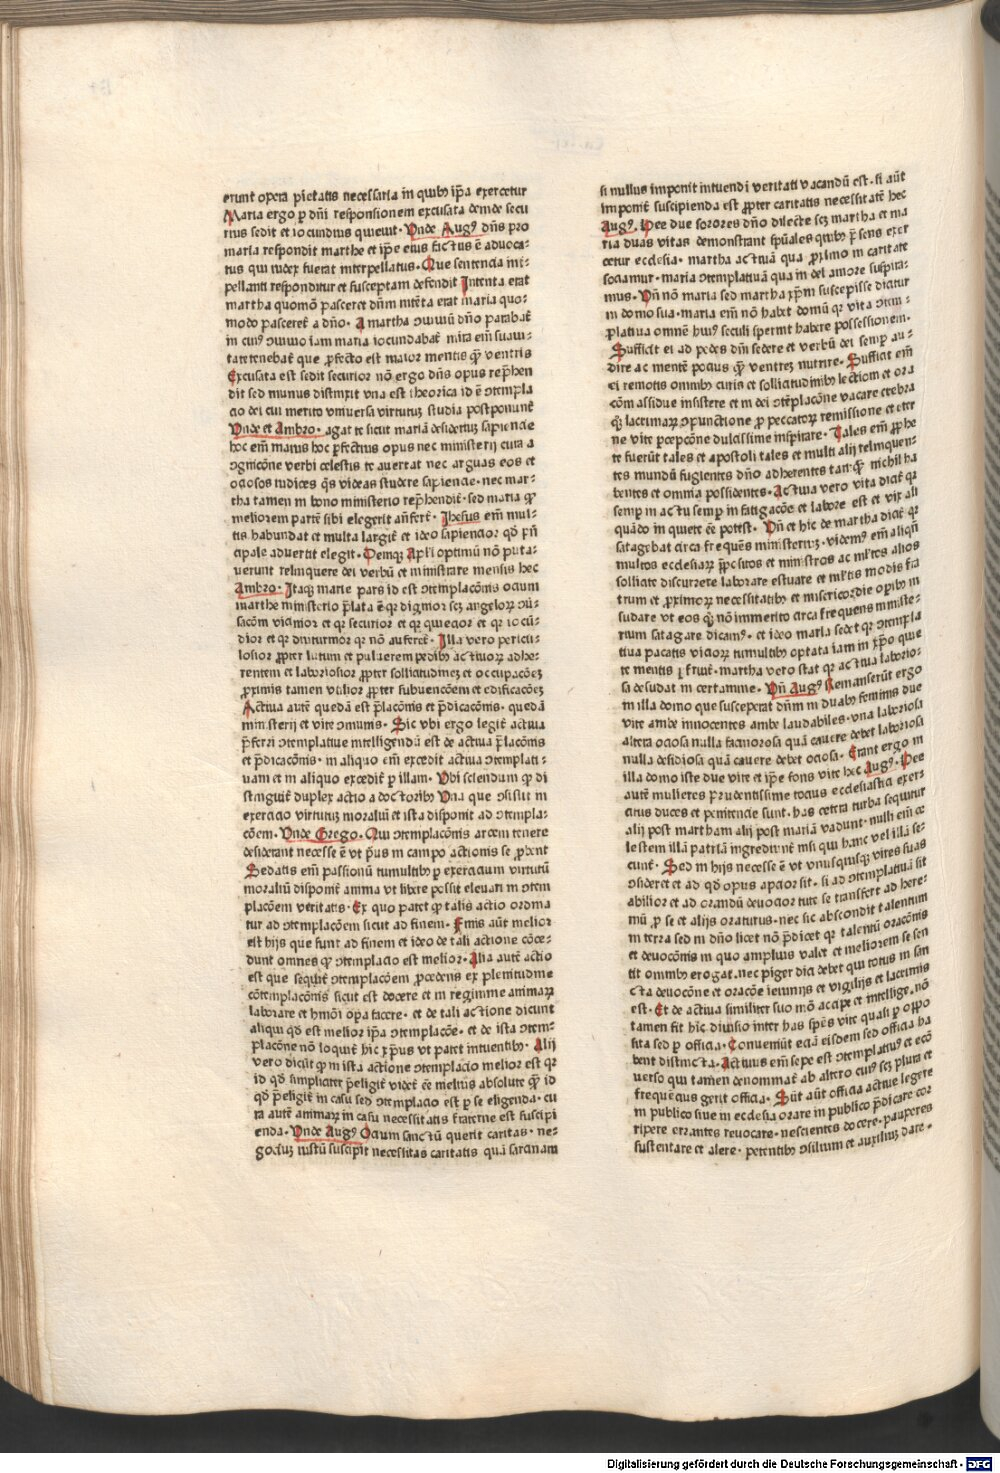 erunt opera pietatis necessaria in quibꝰ ip̄a exercetur
Maria ergo ꝑ dn̄i responsionem excusata deinde secu
rius sedit et iocundius quieuit· Vnde Augꝰ dn̄s pro
maria respondit marthe et ip̄e eius factus ē aduoca-
tus qui iudex fuerat interpellatus· Que sentencia int̄-
pellanti responditur et susceptam defendit Intenta erat
martha quomō pasceret dn̄m intēta erat maria quo-
modo pasceret̄ a dn̄o· A martha ɔuiuiū dn̄o parabat̄
in cuiꝰ ɔuiuio iam maria iocundabat̄ mira em̄ suaui-
tate tenebat̄ que ꝓfecto est maior mentis qꝫ ventris
Excusata est sedit securior nō ergo dn̄s opus rep̄hen
dit sed munus distinxit vna est theorica id ē ɔtempla
cio dei cui merito vniuersa virtutuꝫ studia postponunt̄
Vnde et Ambro· agat te sicut mariā desideriuꝫ sapiencie
hoc em̄ maius hoc ꝑfectius opus nec ministerij cura a
ɔgnicōne verbi celestis te auertat nec arguas eos et
ociosos iudices q̄s videas studere sapiencie· nec mar-
tha tamen in bono ministerio rep̄hendit̄· sed maria qꝫ
meliorem partē sibi elegerit an̄fert̄· Ihesus em̄ mul-
tis habundat et multa largit̄ et ideo sapiencior qd̄ prī
cipale aduertit elegit· Deniqꝫ Apl̄i optimū nō puta-
uerunt relinquere dei verbū et ministrare mensis hec
Ambro· Itaqꝫ marie pars id est ɔtemplacōnis ocium
marthe ministerio p̄lata ē qꝛ dignior scꝫ angeloꝝ ɔū-
sacōm vicinior et qꝛ securior et qꝛ quiecior et qꝛ iocū-
dior et qꝛ diuturnior qꝛ nō auferet̄· Illa vero pericu-
losior ꝓpter lutum et puluerem pedibꝰ actiuoꝝ adhe-
rentem et laboriosior ꝓpter sollicitudinēꝫ et occupacōeꝫ
ꝓximis tamen vtilior ꝓpter subuencōem et edificacōeꝫ
Actiua autē quedā est p̄lacōnis et p̄dicacōnis· quedā
ministerij et vite ɔmunis· Sic vbi ergo legit̄ actiua
p̄ferri ɔtemplatiue intelligendū est de actiua p̄lacōnis
et p̄dicacōnis· in aliquo em̄ excedit actiua ɔtemplati-
uam et in aliquo excedit̄ ꝑ illam· Vbi sciendum qꝫ di
stinguit̄ duplex actio a doctoribꝰ Vna que ɔsistit in
exercicio virtutuꝫ moraliū et ista disponit ad ɔtempla-
cōem· Vnde Grego· Qui ɔtemplacōnis arcem tenere
desiderant necesse ē vt p̄us in campo actionis se ꝓbent
Sedatis em̄ passionū tumultibꝰ ꝑ exercicium virtutū
moraliū disponit̄ anima vt libere possit eleuari in ɔtem
placōem veritatis· Ex quo patet qꝫ talis actio ordina
tur ad ɔtemplacōem sicut ad finem· Finis aūt melior
est hijs que sunt ad finem et ideo de tali actione cōce-
dunt omnes qꝫ ɔtemplacio est melior· Alia autē actio
est que sequit̄ ɔtemplacōem ꝓcedens ex plenitudine
cōtemplacōnis sicut est docere et in regimine animaꝝ
laborare et hmōi oꝑa facere· et de tali actione dicunt
aliqui qd̄ est melior ip̄a ɔtemplacōe· et de ista ɔtem-
placōne nō loquit̄ hic xp̄us vt patet intuentibꝰ· Alij
vero dicūt qꝫ in ista actione ɔtemplacio melior est qꝛ
id qd̄ simpliciter p̄eligit̄ videt̄ ēe melius absolute qꝫ id
qd̄ p̄eligit̄ in casu sed ɔtemplacio est ꝑ se eligenda· cu
ra autē animaꝝ in casu necessitatis fraterne est suscipi
enda· Vnde Augꝰ Ocium sanctū querit caritas· ne-
gociuꝫ iustū suscipit necessitas caritatis quā sarcinam
si nullus imponit intuendi veritati vacandū est· si aūt
imponit̄ suscipienda est ꝓpter caritatis necessitatē hec
Augꝰ· Hee due sorores dn̄o dilecte scꝫ martha et ma
ria duas vitas demonstrant spūales quibꝰ p̄sens exer
cetur ecclesia· martha actiuā qua ꝓximo in caritate
sociamur· maria ɔtemplatiuā qua in dei amore suspira-
mus· Vn̄ nō maria sed martha xp̄m suscepisse dicitur
in domo sua· maria em̄ nō habet domū qꝛ vita ɔtem-
platiua omnē huiꝰ seculi spernit habere possessionem·
Sufficit ei ad pedes dn̄i sedere et verbū dei semꝑ au-
dire ac mentē pocius qꝫ ventreꝫ nutrire· Sufficit em̄
ei remotis omnibꝰ curis et sollicitudinibꝰ lectioni et ora
cōni assidue insistere et in dei ɔtēplacōne vacare crebra
qꝫ lacrimaꝝ ɔpunctione ꝑ peccatoꝝ remissione et eter
ne vite ꝑcepcōne dulcissime inspirare· Tales em̄ ꝓphe
te fuerūt tales et apostoli tales et multi alij relinquen-
tes mundū fugientes dn̄o adherentes tanqꝫ nichil ha
bentes et omnia possidentes· Actiua vero vita dicit̄ qꝛ
semꝑ in actu semꝑ in fatigacōe et labore est et vix ali
quādo in quiete ēe potest· Vn̄ et hic de martha dicit̄ qꝛ
satagebat circa frequēs ministeriuꝫ· videmꝰ em̄ aliqn̄
multos ecclesiaꝝ p̄positos et ministros ac ml̄tos alios
sollicite discurrere laborare estuare et ml̄tis modis fra
trum et ꝓximoꝝ necessitatibꝰ et misericordie oꝑibꝰ in
sudare vt eos qꝫ nō immerito circa frequens ministe-
rium satagare dicamꝰ· et ideo maria sedet qꝛ ɔtempla
tiua pacatis vicioꝝ tumultibꝰ optata iam in xp̄o quie
te mentis ꝑfruit̄· martha vero stat qꝛ actiua laborio-
sa desudat in certamine· Vn̄ Augꝰ Remanserūt ergo
in illa domo que susceperat dn̄m in duabꝰ feminis due
vite ambe innocentes ambe laudabiles· vna laboriosa
altera ociosa nulla facinorosa quā cauere debet laboriosa
nulla desidiosa quā cauere debet ociosa· Erant ergo in
illa domo iste due vite et ip̄e fons vite hec Augꝰ· Hee
autē mulieres prudentissime tocius ecclesiastici exer-
citus duces et penitencie sunt· has cetera turba sequitur
alij post martham alij post mariā vadunt· nulli em̄ ce
lestem illā patriā ingrediunt̄ nisi qui hanc vel illā se-
cunt̄· Sed in hijs necesse ē vt vnusquisqꝫ vires suas
ɔsideret et ad qd̄ opus apcior sit· si ad ɔtemplatiuā sit
abilior et ad orandū deuocior tute se transfert ad here-
mū ꝑ se et alijs oraturus· nec sic abscondit talentum
in terra sed in dn̄o licet nō p̄dicet qꝛ talentū oracōnis
et deuocōnis in quo amplius valet et meliorem se sen
tit omnibꝰ erogat· nec piger dici debet qui totus in san
cta deuocōne et oracōe ieiunijs et vigilijs et lacrimis
est· Et de actiua similiter suo mō accipe et intellige· nō
tamen fit hic diuisio inter has sp̄es vite quasi ꝑ oppo
sita sed ꝑ officia· Conueniūt eā eisdem sed officia ha
bent distincta· Actiuus em̄ sepe est ɔtemplatiuꝰ et ecō
uerso qui tamen denominat̄ ab altero cuiꝰ scꝫ plura et
frequēcius gerit officia· Sūt aūt officia actiue legere
in publico siue in ecclesia orare in publico p̄dicare cor
ripere errantes reuocare· nescientes docere· pauperes
sustentare et alere· petentibꝰ ɔsilium et auxiliuꝫ dare·
Digitalisierung gefördert durch die Deutsche Forschungsgemeinschaft - DFG